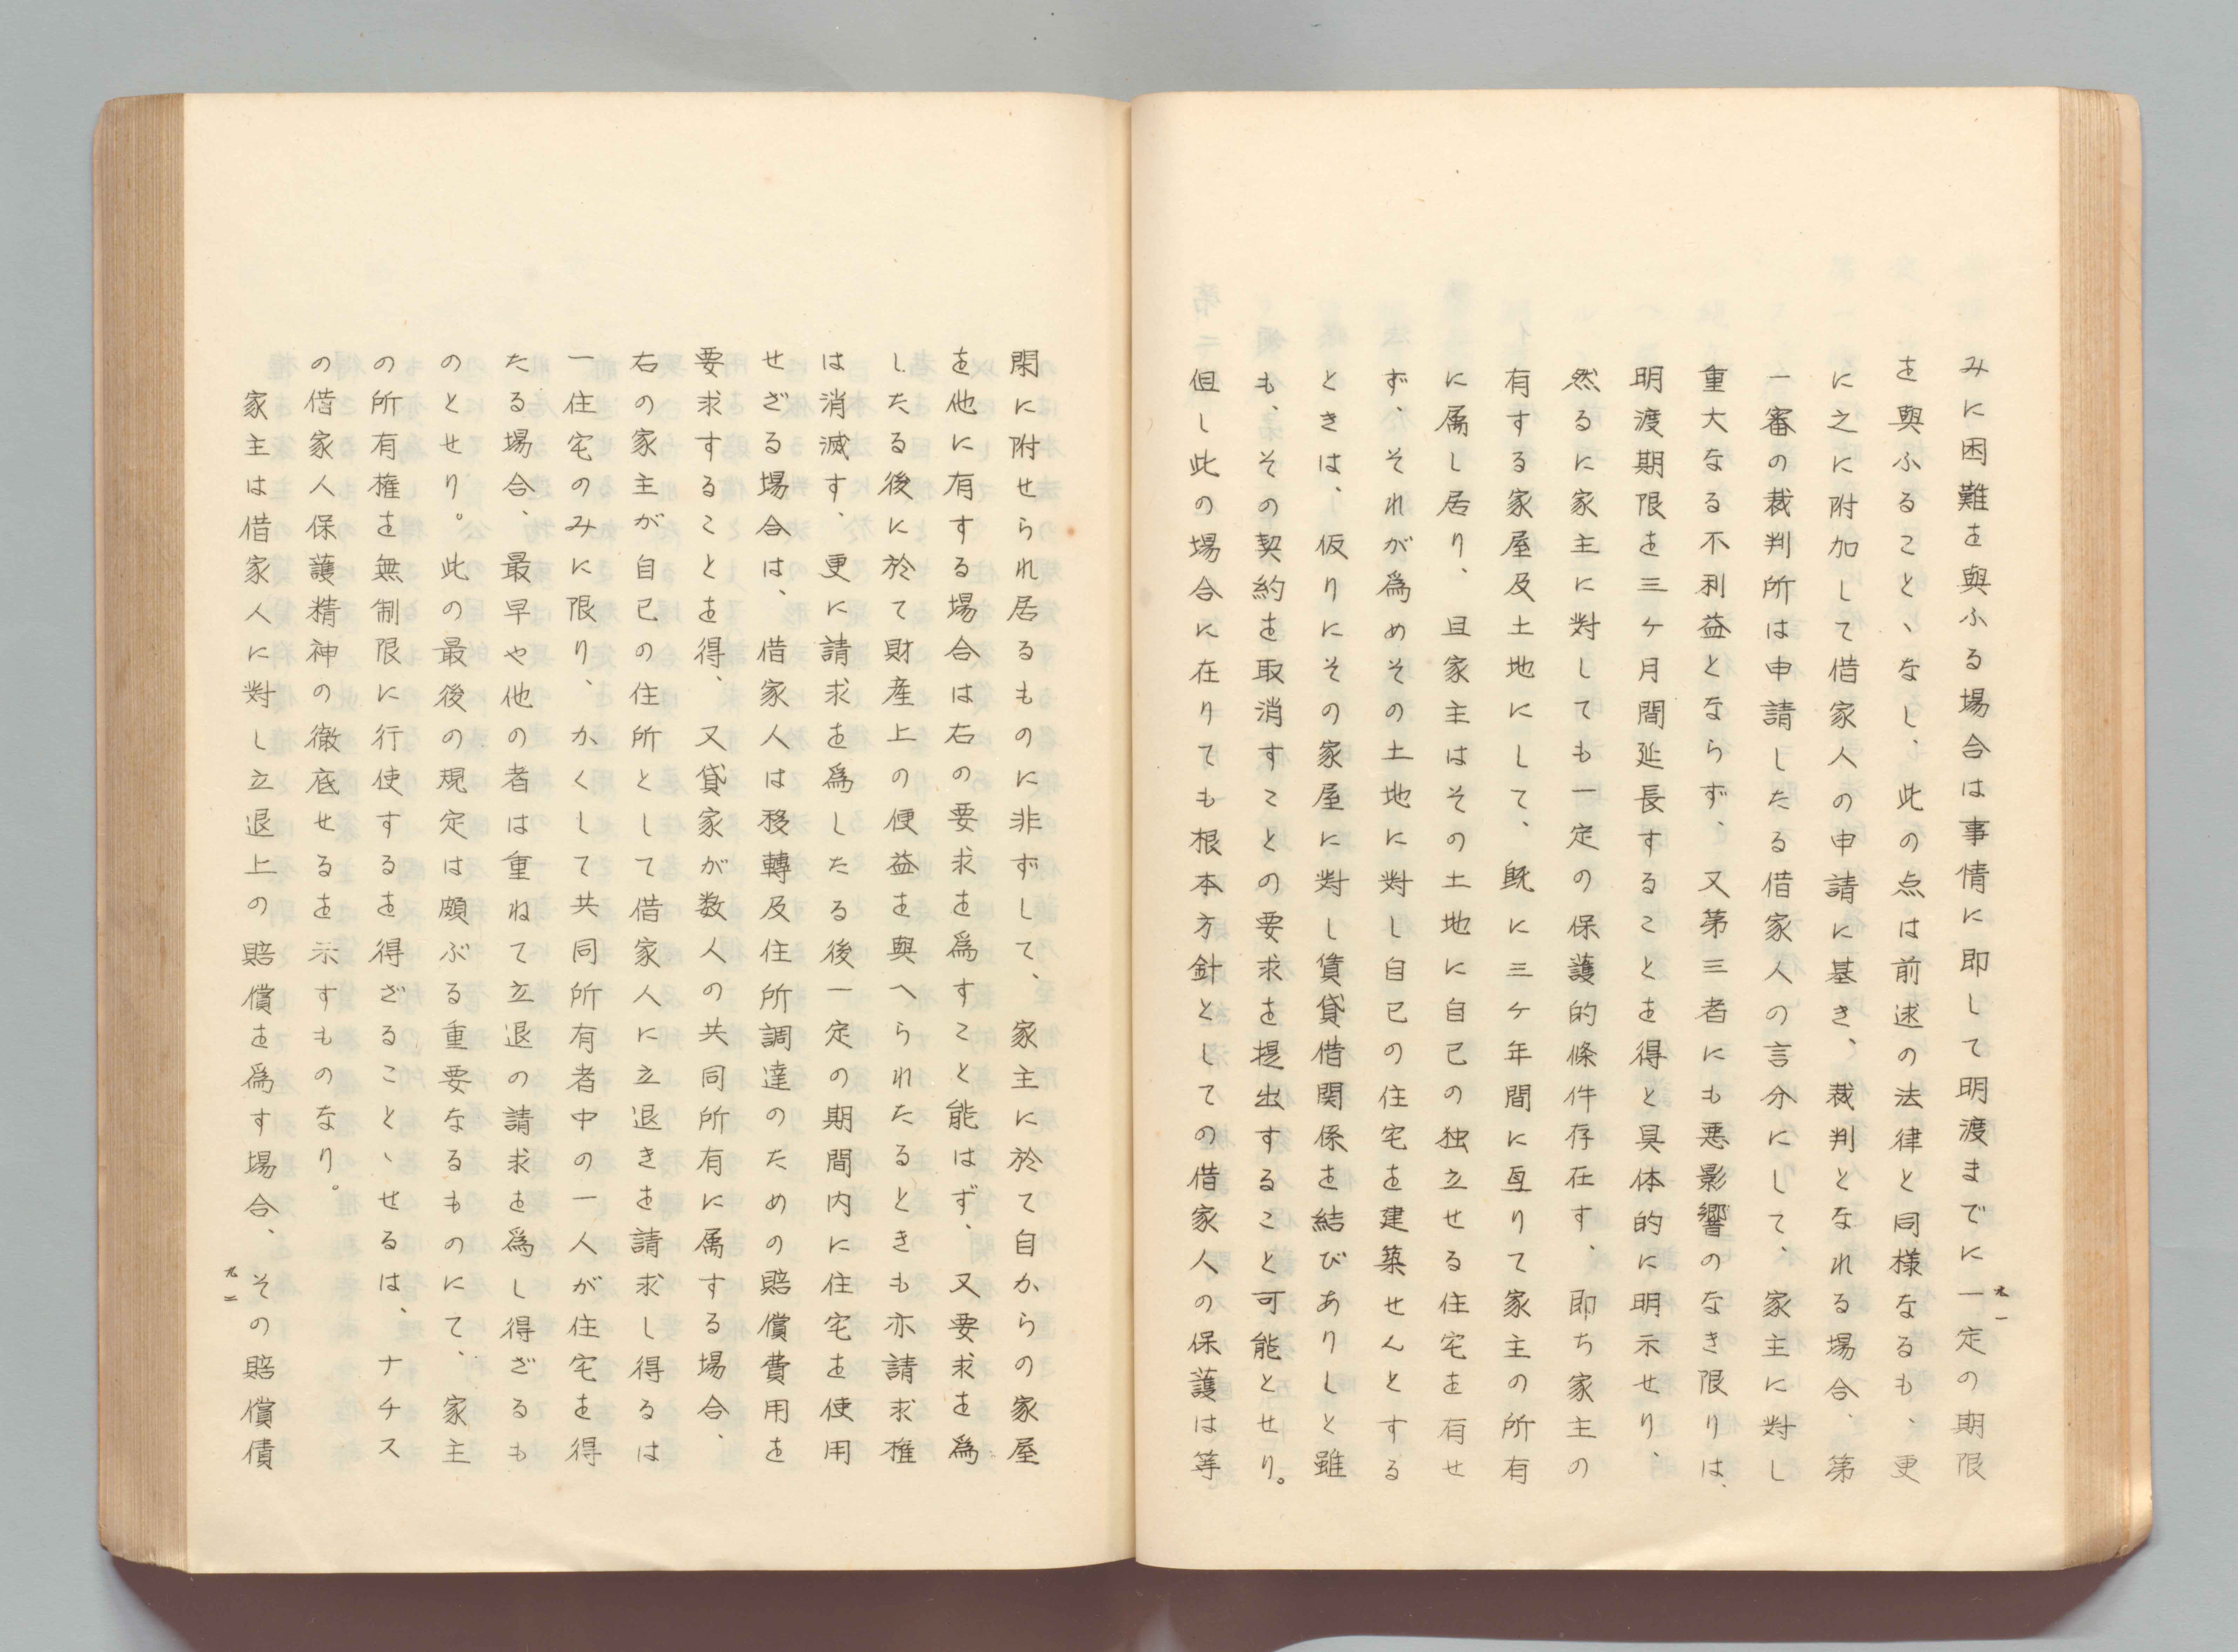 みに困難を與ふる場合は事情に即して明渡までに一定の期限
を與ふること、なし、此の点は前述の法律と同様なるも、更
に之に附加して借家人の申請に基き、裁判となれる場合、第
一審の裁判所は申請したる借家人の言分にして、家主に対し
重大なる不利益とならず、又第三者にも悪影響のなき限りは、
明渡期限を三ヶ月間延長することを得と具体的に明示せり、
然るに家主に對しても一定の保護的條件存在す、即ち家主の
有する家屋及土地にして、既に三ケ年間に亘りて家主の所有
に属し居り、且家主はその土地に自己の独立せる住宅を有せ
ず、それが爲めその土地に對し自己の住宅を建築せんとする
ときは、仮りにその家屋に對し賃貸借関係を結びありしと雖
も、その契約を取消すことの要求を提出すること可能とせり。
但し此の場合に在りても根本方針としての借家人の保護は等
九一
閑に附せられ居るものに非ずして、家主に於て自からの家屋
を他に有する場合は右の要求を爲すこと能はず、又要求を爲
したる後に於て財産上の便益を與へられたるときも亦請求権
は消滅す、更に請求を爲したる後一定の期間内に住宅を使用
せざる場合は、借家人は移轉及住所調達のための賠償費用を
要求することを得、又貸家が数人の共同所有に属する場合、
右の家主が自己の住所として借家人に立退きを請求し得るは
一住宅のみに限り、かくして共同所有者中の一人が住宅を得
たる場合、最早や他の者は重ねて立退の請求を爲し得ざるも
のとせり。此の最後の規定は頗ぶる重要なるものにて、家主
の所有権を無制限に行使するを得ざること、せるは、ナチス
の借家人保護精神の徹底せるを示すものなり。
家主は借家人に對し立退上の賠償を爲す場合、その賠償債
九二